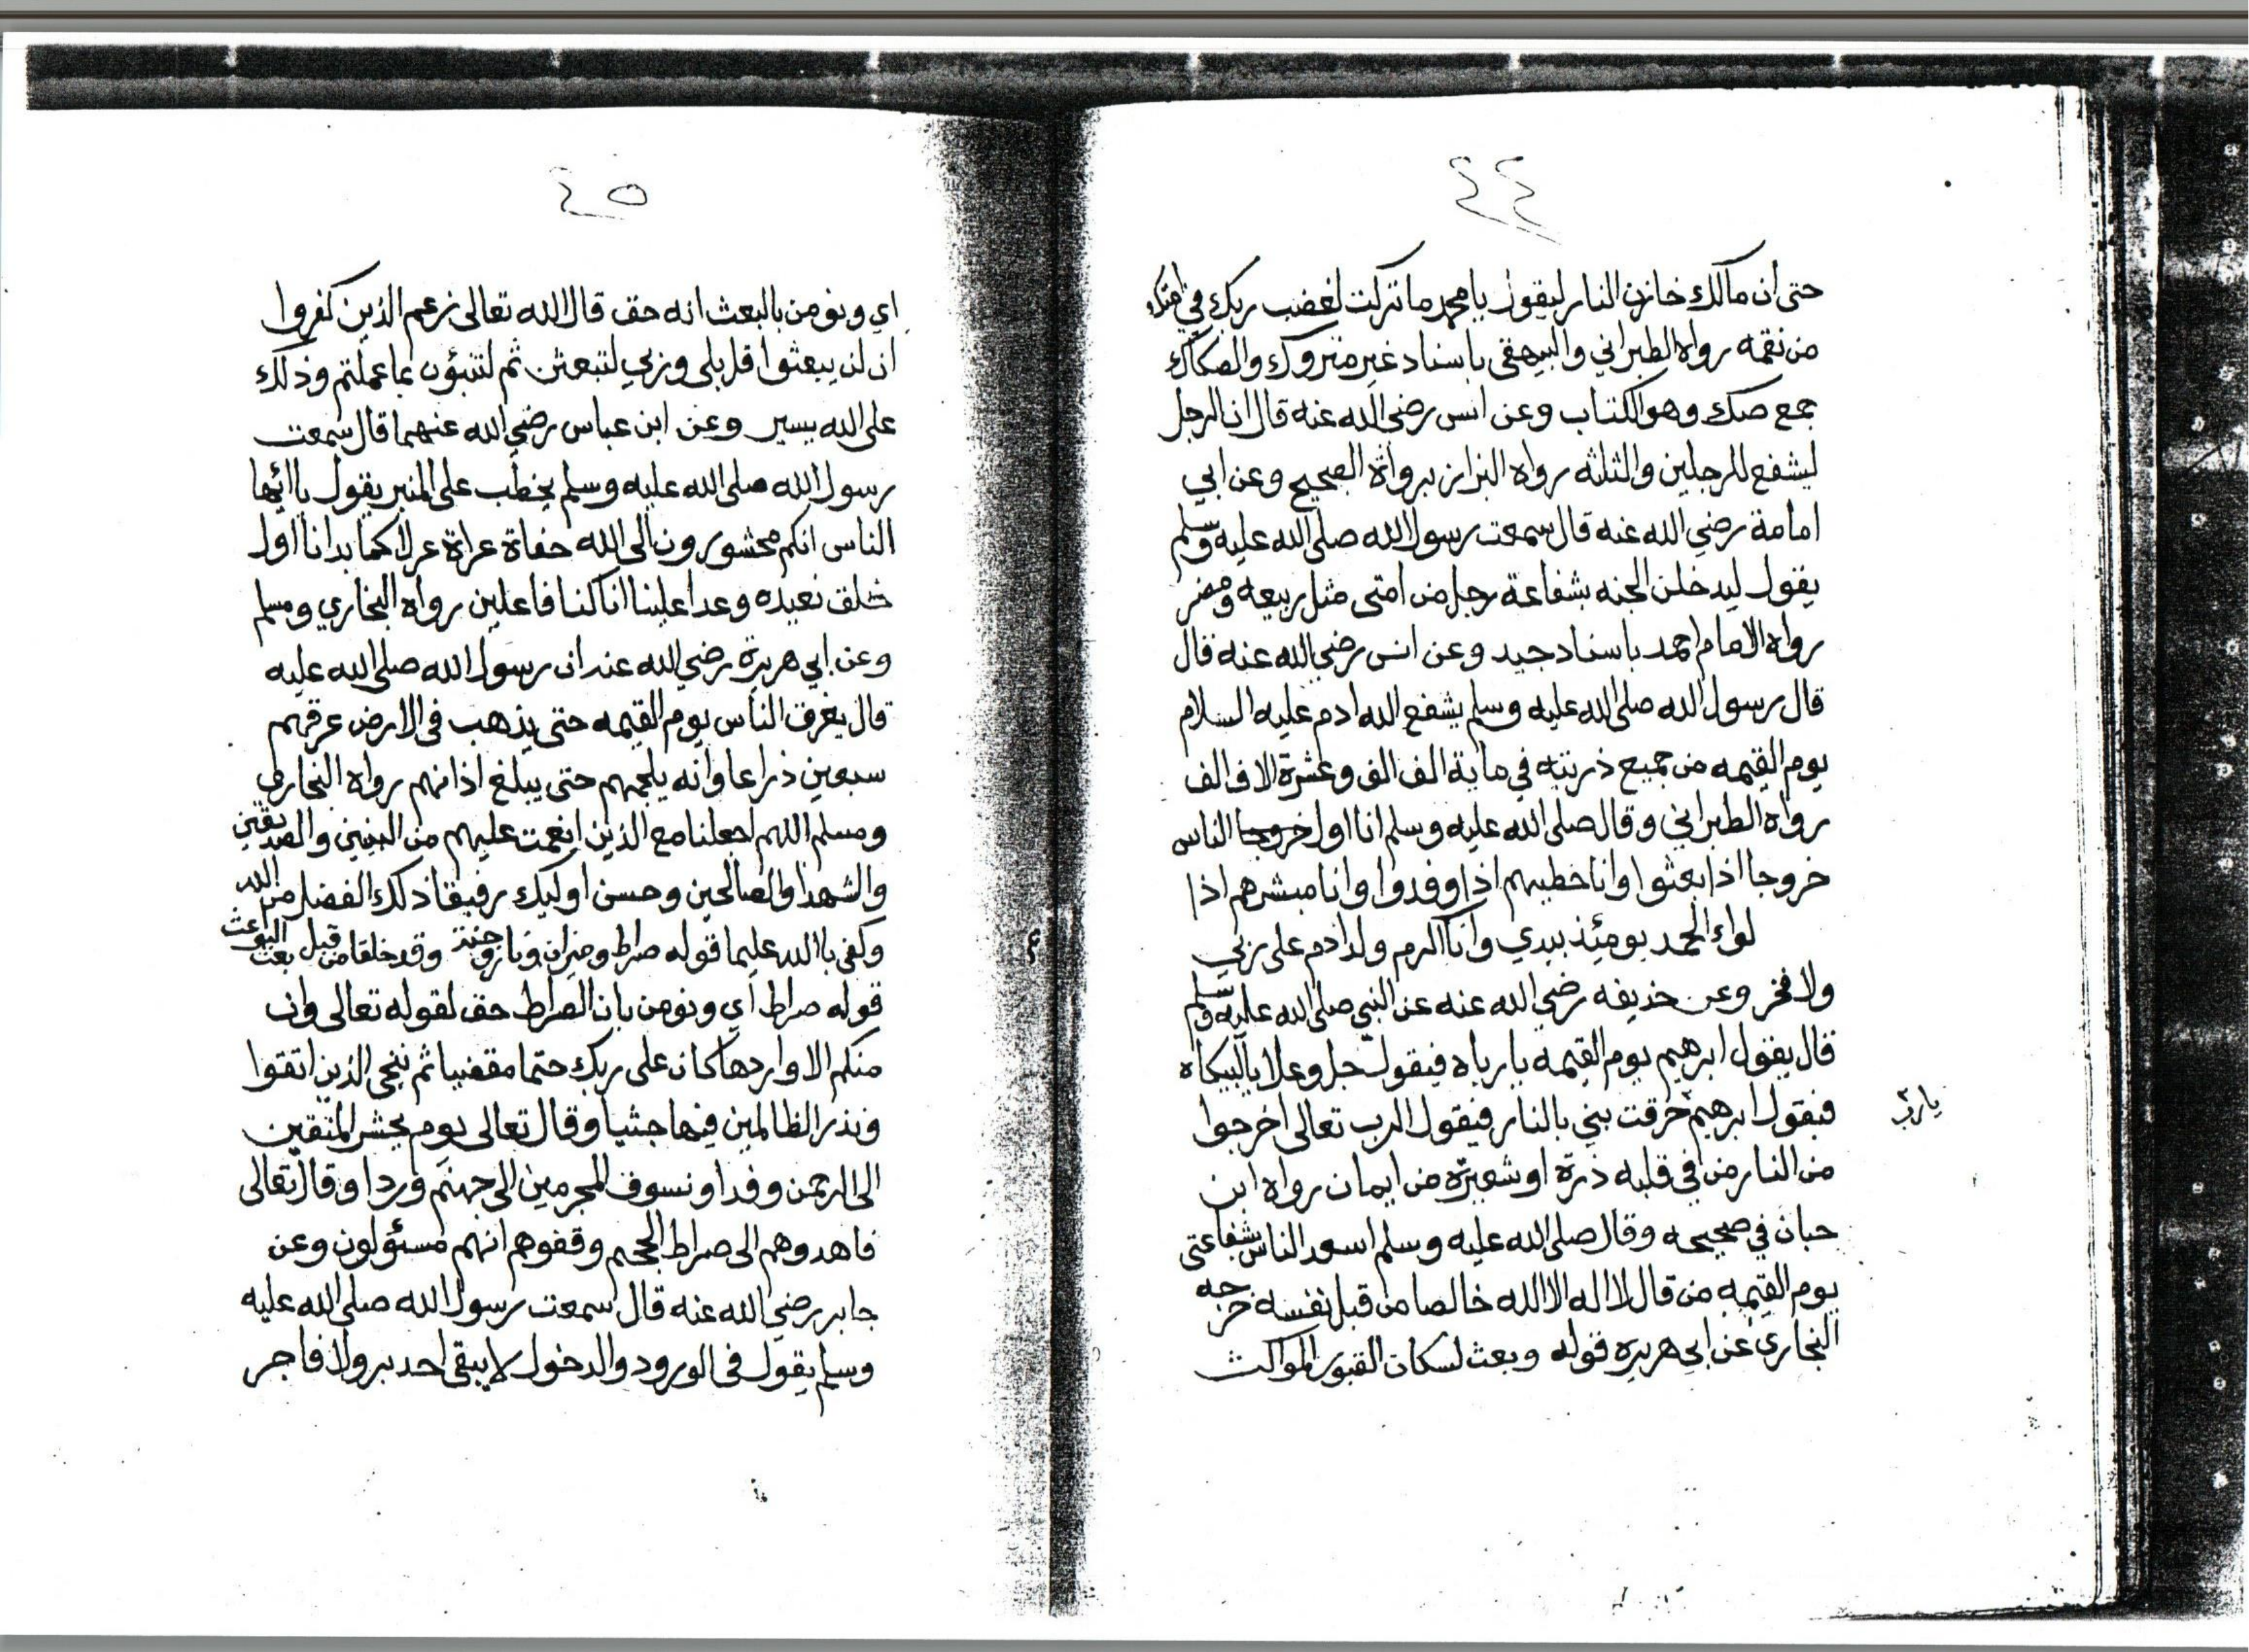 ٤٤
حتى أن مالك خازن النار ليقول يا محمد ما تركت لغضب ربك في امتك
من نقمه رواه الطبراني والبيهقى باسناد غير متروك والصكاك
جمع صك وهو الكتاب وعن انس رضي الله عنه قال ان الرجل
ليشفع للرجلين والثلثه رواه البزاز برواة الصحيح وعن ابي
امامة رضي الله عنه قال سمعت رسول الله صلى الله عليه وسلم
يقول ليدخلن الجنه بشفاعة رجل من امتى مثل ربيعه ومضر
رواه الامام احمد باسناد جيد وعن انس رضي الله عنه قال
قال رسول الله صلى الله عليه وسلم يشفع الله ادم عليه السلام
يوم القيمه من جميع ذريته في ماية الف الف وعشرة الاف الف
رواه الطبراني وقال صلى الله عليه وسلم انا اول خروجا الناس
خروجا اذا بعثوا وانا خطيبهم اذا وفدوا وانا مبشرهم اذا
لواء الحمد يومئذ بيدي وانا اكرم ولد ادم على ربي
ولا فخر وعن حذيفه رضي الله عنه عن النبي صلى الله عليه وسلم
قال يقول ابرهيم يوم القيمه يا رباه فيقول جل وعلا يا لبيكاه
فيقول ابرهيم حرقت بني بالنار فيقول الرب تعالى اخرجوا
يا رب
من النار من في قلبه ذرة او شعيرة من ايمان رواه ابن
حبان في صحيحه وقال صلى الله عليه وسلم اسعد الناس بشفاعتى
يوم القيمه من قال لا اله الا الله خالصا من قبل نفسه خرجه
البخاري عن ابي هريره قوله وبعث لسكان القبور المواكث
٤٥
اي ونومن بالبعث انه حق قال الله تعالى زعم الذين كفروا
ان لن يبعثوا قل بلى وربي لتبعثن ثم لتنبؤن بما عملتم وذلك
على الله يسير وعن ابن عباس رضي الله عنهما قال سمعت
رسول الله صلى الله عليه وسلم يخطب على المنبر يقول يا ائيها
الناس انكم محشورون الى الله حفاة عراة عرلا كما بدانا اول
خلق نعيده وعدا علينا انا كنا فاعلين رواه البخاري ومسلم
وعن ابي هريرة رضي الله عنه ان رسول الله صلى الله عليه
قال يغرق الناس يوم القيمه حتى يذهب في الارض عرقهم
سبعين ذراعا وانه يلجمهم حتى يبلغ اذانهم رواه البخاري
ومسلم اللهم اجعلنا مع الذين انعمت عليهم من النبيين والصديقين
والشهدا والصالحين وحسن اوليك رفيقا ذلك الفضل من الله
وكفى بالله عليما قوله صراط وميزان ونار وجنة وقد خلقا من قبل بعث البواعث
قوله صراط أي ونومن بان الصراط حق لقوله تعالى وان
منكم الا واردها كان على ربك حتما مقضيا ثم ننجي الذين اتقوا
ونذر الظالمين فيها جثيا وقال تعالى يوم يحشر المتقين
الى الرحمن وفدا ونسوف المجرمين الى جهنم وردا وقال تعالى
فاهدوهم الى صراط الجحيم وقفوهم انهم مسئولون وعن
جابر رضي الله عنه قال سمعت رسول الله صلى الله عليه
وسلم يقول في الورود والدخول لا يبقى احد بر ولا فاجر